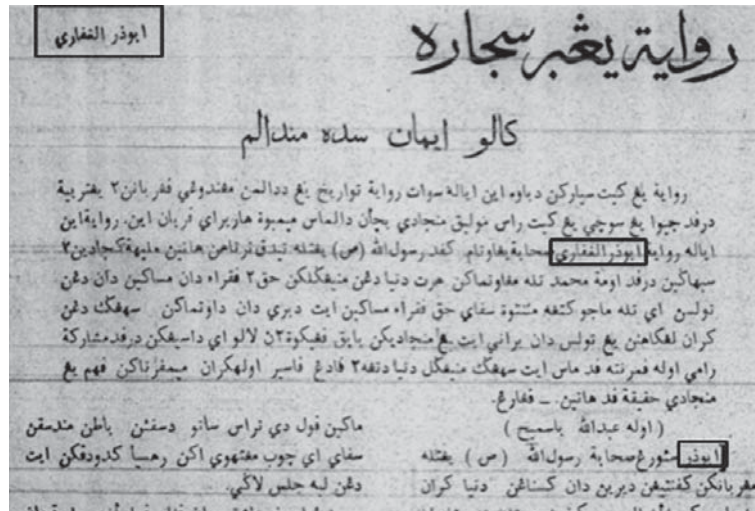 ابوذر الغفاري
رواية يڠ برسجاره
كالو ايمان سده مندالم
رواية يڠ كيت سيارکن دباوه اين اياله سوات رواية تواريخ يڠ ددالمن مڠندوڠي ڤڠربانن٢
درڤد جيوا يڠ سوچي يڠ كيت راس موليق منجادي بچان دالم ماس ميمبوة هاري راي قربان اين. رواية اين
اياله رواية ابوذر الغفاري صحابة يڠ اوتام كڤد رسول الله (ص) يڠ تله تيدق ترتاهن هاتين مليهة كجادين٢
سبهاڬين درڤد اومة محمد تله مڠاوتماكن هرت دنيا دڠن منيڠڬلكن حق٢ فقراء دان مساكين دان دڠن
تولسن اي تله ماجو كتڠه مننتوة سڤاي حق فقراء مساكين ايت دبري دان داوتماكن سهڠڬ دڠن
كران لڠكاهن يڠ تولس دان براني ايت يڠ منجاديكن باپق ڤڠيكوة٢ن لالو اي داسيڠكن درڤد مشاركة
رامي اوله ڤمرنته ڤد ماس ايت سهڠڬ منيڠڬل دنيا
منجادي حقيقة ڤد هاتين. ــ ڤڠارڠ.
( اوله عبدالله باسميح )
ابوذر سئورڠ صحابة رسول الله (ص) يڠ تله
مڠربانكن كڤنتيڠن ديرين دان كسناڠن دنيا كران
ماكين ڤول دي تراس ساتو دسڤتن باطن مندسقن
سڤاي اي چوب مڠتهوي اكن رهسيا كدودقكن ايت
دڠن لبه جلس لاڬي.